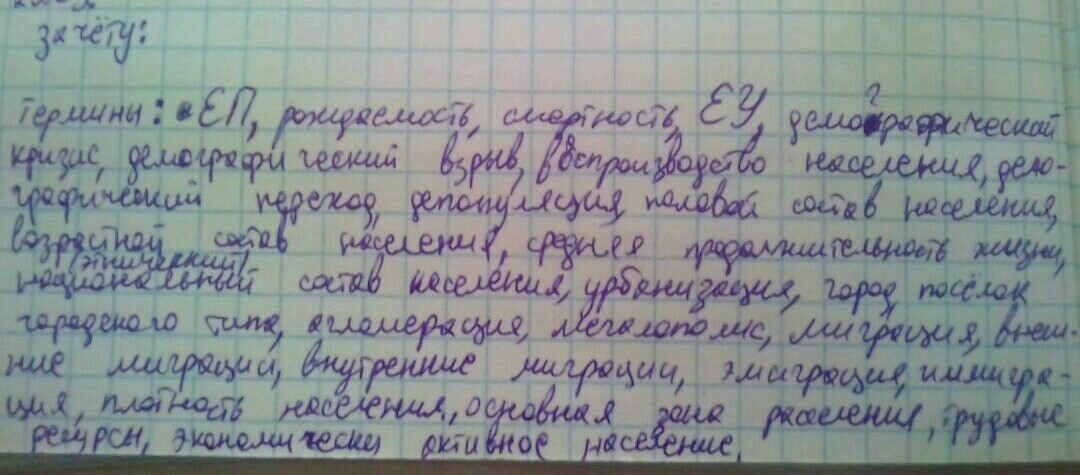 зачёту:
термины: ЕП, рождаемость, смертность, ЕУ, демографический
кризис, демографический взрыв, воспроизводство населения, демо-
графический переход, депопуляция, половой состав населения,
возрастной состав населения, средняя продолжительность жизни,
(этнический)
национальный состав населения, урбанизация, город, посёлок
городского типа, агломерация, мегалополис, миграция, внеш-
ние миграции, внутренние миграции, эмиграция, иммигра-
ция, плотность населения, основная зона расселения, трудовые
ресурсы, экономически активное население.